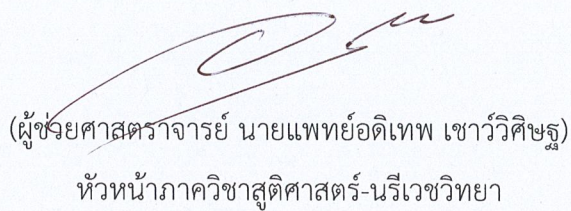 (ผู้ช่วยศาสตราจารย์ นายแพทย์อดิเทพ เชาว์วิศิษฐ)
หัวหน้าภาควิชาสูติศาสตร์-นรีเวชวิทยา